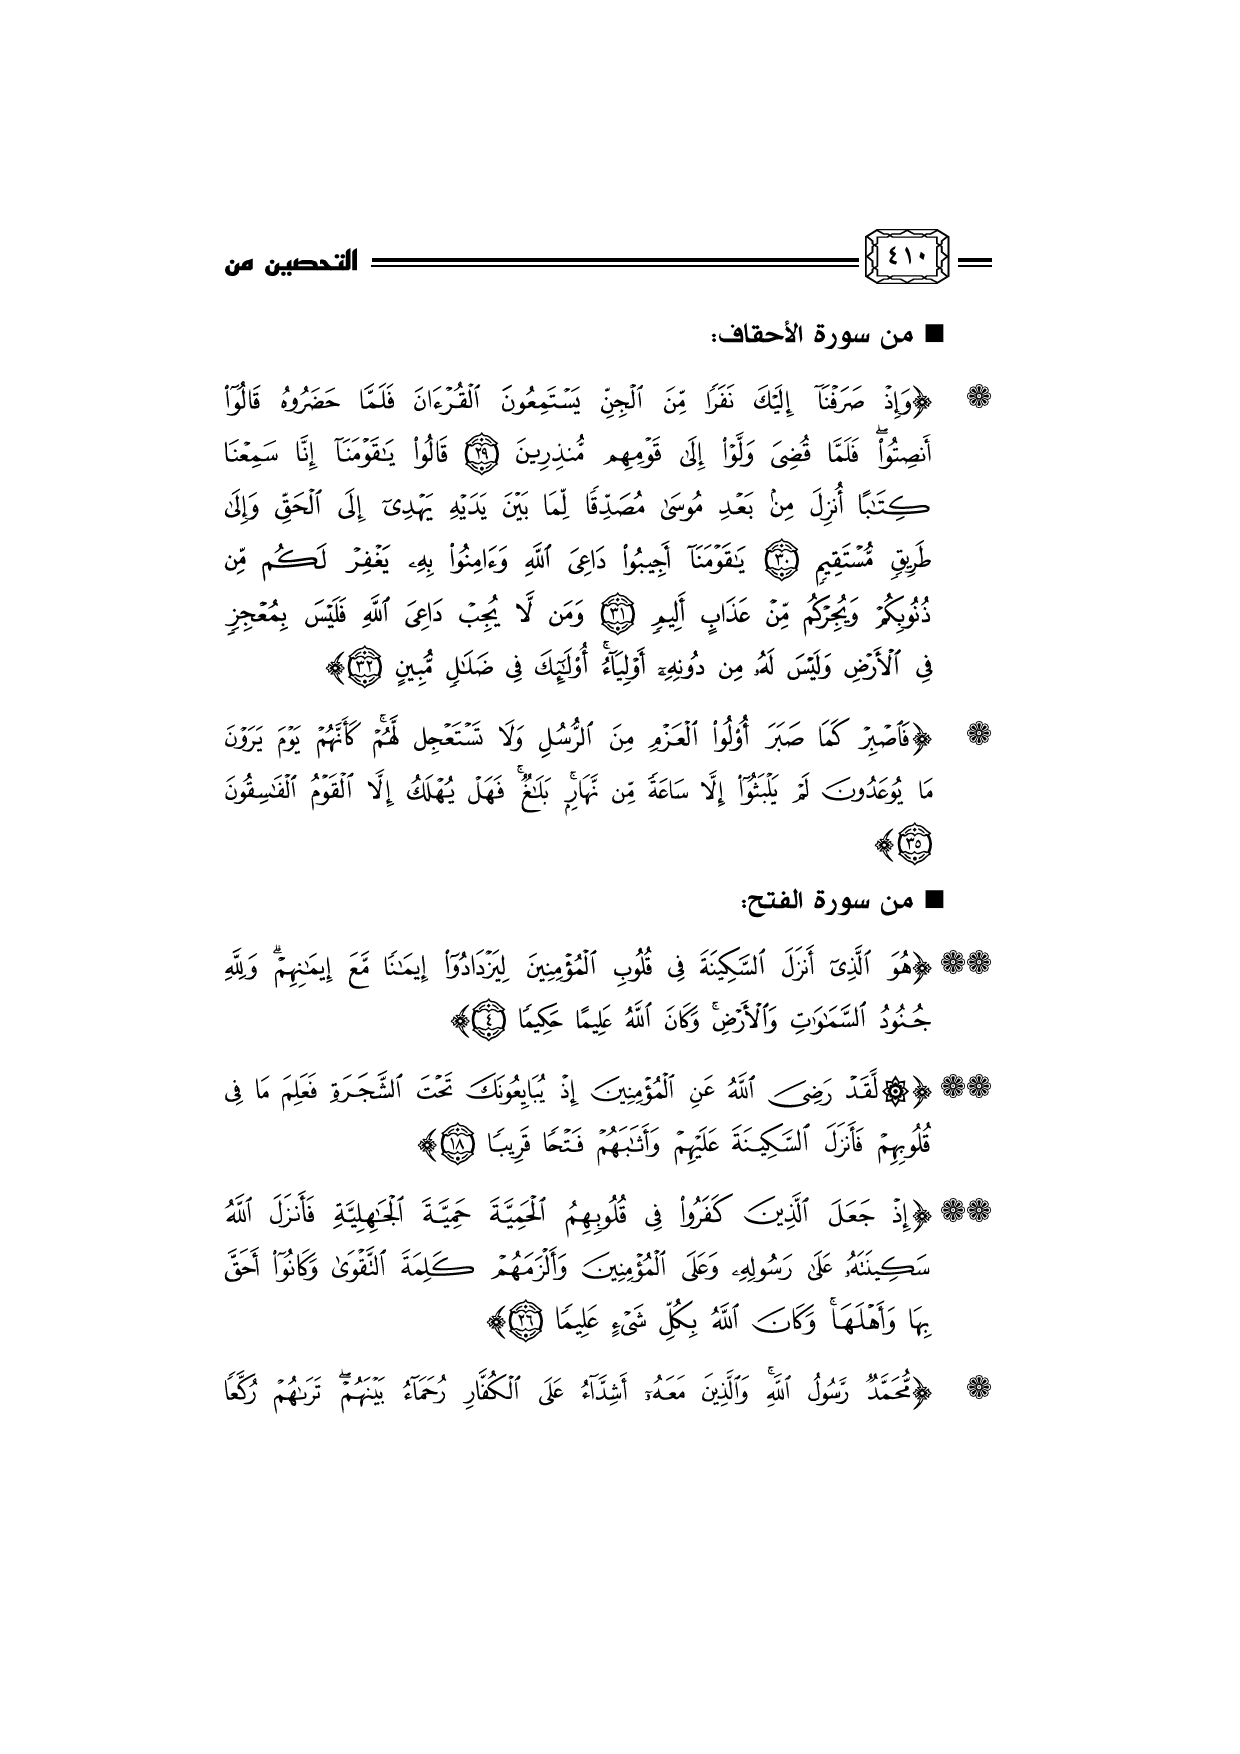 ٤١٠ التحصين من
■ من سورة الأحقاف:
❁ ﴿وَإِذْ صَرَفْنَآ إِلَيْكَ نَفَرًا مِّنَ ٱلْجِنِّ يَسْتَمِعُونَ ٱلْقُرْءَانَ فَلَمَّا حَضَرُوهُ قَالُوٓا۟
أَنصِتُوا۟ ۖ فَلَمَّا قُضِىَ وَلَّوْا۟ إِلَىٰ قَوْمِهِم مُّنذِرِينَ ٢٩ قَالُوا۟ يَـٰقَوْمَنَآ إِنَّا سَمِعْنَا
كِتَـٰبًا أُنزِلَ مِنۢ بَعْدِ مُوسَىٰ مُصَدِّقًا لِّمَا بَيْنَ يَدَيْهِ يَهْدِىٓ إِلَى ٱلْحَقِّ وَإِلَىٰ
طَرِيقٍ مُّسْتَقِيمٍ ٣٠ يَـٰقَوْمَنَآ أَجِيبُوا۟ دَاعِىَ ٱللَّهِ وَءَامِنُوا۟ بِهِۦ يَغْفِرْ لَكُم مِّن
ذُنُوبِكُمْ وَيُجِرْكُم مِّنْ عَذَابٍ أَلِيمٍ ٣١ وَمَن لَّا يُجِبْ دَاعِىَ ٱللَّهِ فَلَيْسَ بِمُعْجِزٍ
فِى ٱلْأَرْضِ وَلَيْسَ لَهُۥ مِن دُونِهِۦٓ أَوْلِيَآءُ ۚ أُو۟لَـٰٓئِكَ فِى ضَلَـٰلٍ مُّبِينٍ ٣٢﴾
❁ ﴿فَٱصْبِرْ كَمَا صَبَرَ أُو۟لُوا۟ ٱلْعَزْمِ مِنَ ٱلرُّسُلِ وَلَا تَسْتَعْجِل لَّهُمْ ۚ كَأَنَّهُمْ يَوْمَ يَرَوْنَ
مَا يُوعَدُونَ لَمْ يَلْبَثُوٓا۟ إِلَّا سَاعَةً مِّن نَّهَارٍۭ ۚ بَلَـٰغٌ ۚ فَهَلْ يُهْلَكُ إِلَّا ٱلْقَوْمُ ٱلْفَـٰسِقُونَ
٣٥﴾
■ من سورة الفتح:
❁❁ ﴿هُوَ ٱلَّذِىٓ أَنزَلَ ٱلسَّكِينَةَ فِى قُلُوبِ ٱلْمُؤْمِنِينَ لِيَزْدَادُوٓا۟ إِيمَـٰنًا مَّعَ إِيمَـٰنِهِمْ ۗ وَلِلَّهِ
جُنُودُ ٱلسَّمَـٰوَٰتِ وَٱلْأَرْضِ ۚ وَكَانَ ٱللَّهُ عَلِيمًا حَكِيمًا ٤﴾
❁❁ ﴿۞لَّقَدْ رَضِىَ ٱللَّهُ عَنِ ٱلْمُؤْمِنِينَ إِذْ يُبَايِعُونَكَ تَحْتَ ٱلشَّجَرَةِ فَعَلِمَ مَا فِى
قُلُوبِهِمْ فَأَنزَلَ ٱلسَّكِينَةَ عَلَيْهِمْ وَأَثَـٰبَهُمْ فَتْحًا قَرِيبًا ١٨﴾
❁❁ ﴿إِذْ جَعَلَ ٱلَّذِينَ كَفَرُوا۟ فِى قُلُوبِهِمُ ٱلْحَمِيَّةَ حَمِيَّةَ ٱلْجَـٰهِلِيَّةِ فَأَنزَلَ ٱللَّهُ
سَكِينَتَهُۥ عَلَىٰ رَسُولِهِۦ وَعَلَى ٱلْمُؤْمِنِينَ وَأَلْزَمَهُمْ كَلِمَةَ ٱلتَّقْوَىٰ وَكَانُوٓا۟ أَحَقَّ
بِهَا وَأَهْلَهَا ۚ وَكَانَ ٱللَّهُ بِكُلِّ شَىْءٍ عَلِيمًا ٢٦﴾
❁ ﴿مُّحَمَّدٌ رَّسُولُ ٱللَّهِ ۚ وَٱلَّذِينَ مَعَهُۥٓ أَشِدَّآءُ عَلَى ٱلْكُفَّارِ رُحَمَآءُ بَيْنَهُمْ ۖ تَرَىٰهُمْ رُكَّعًا